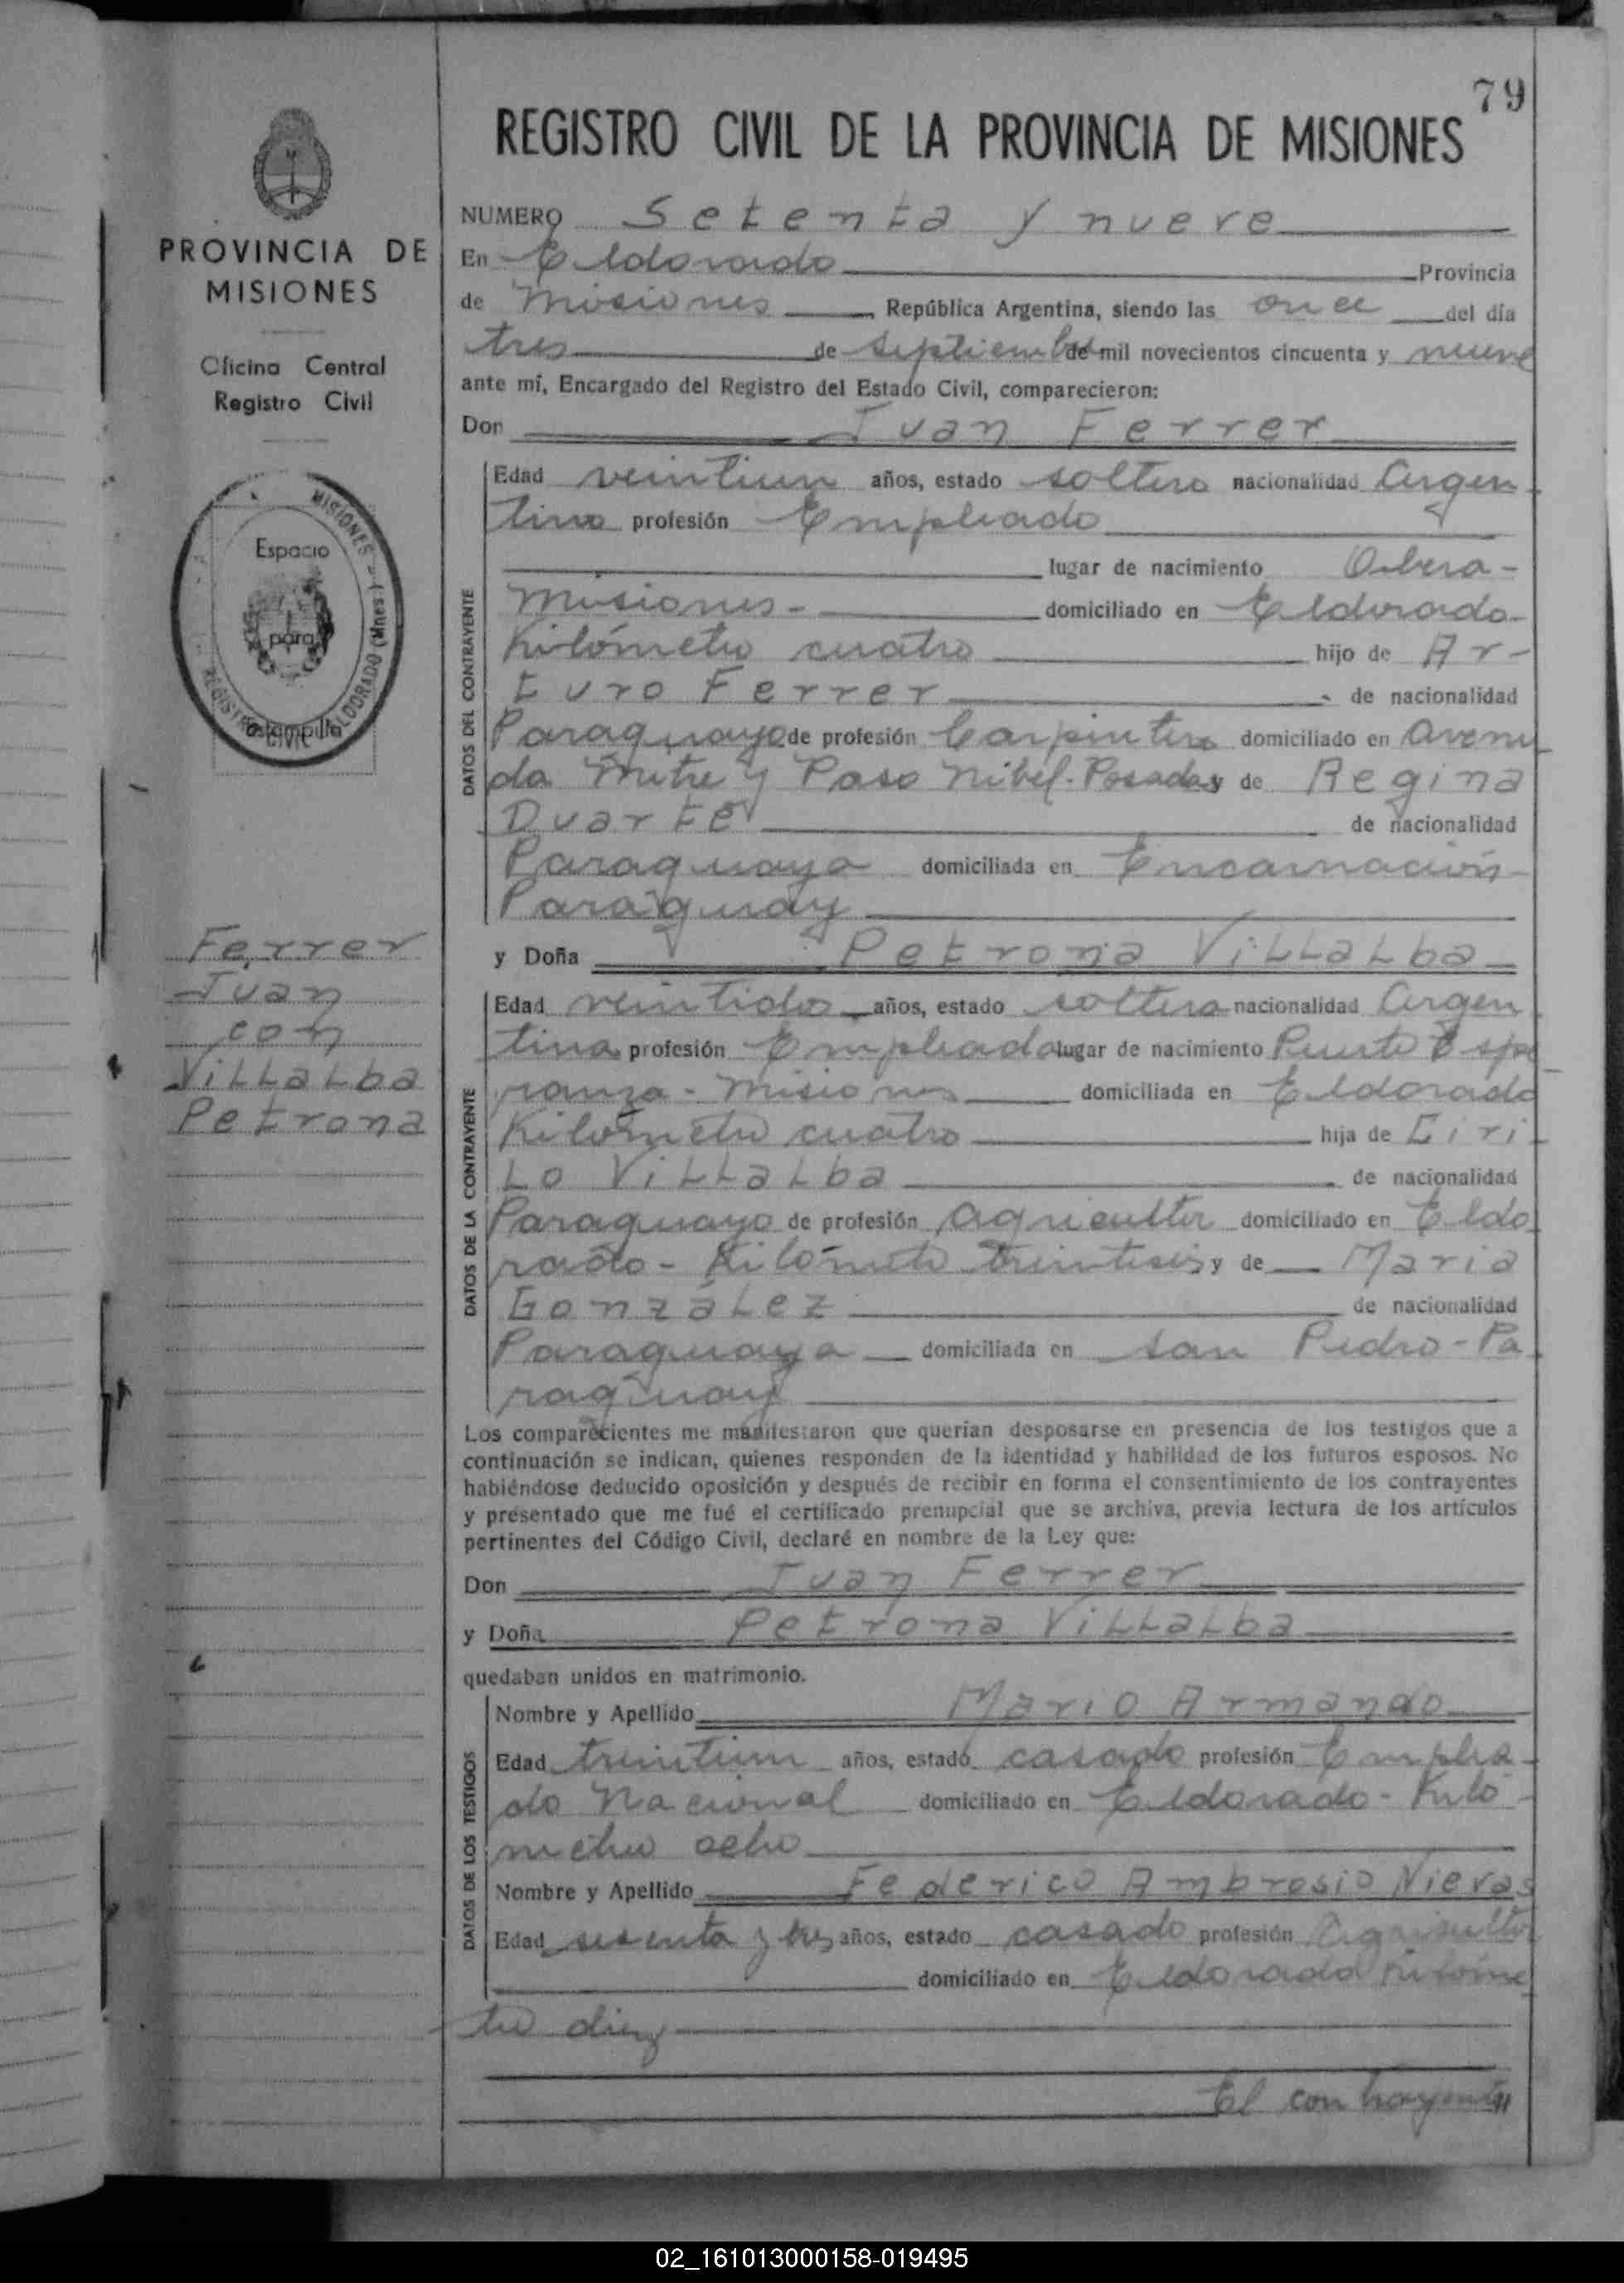 79
REGISTRO CIVIL DE LA PROVINCIA DE MISIONES
PROVINCIA DE
MISIONES
Oficina Central
Registro Civil
MISIONES
Espacio
para
Estampilla
REGISTRO CIVIL ELDORADO (Mnes.)
Ferrer
Juan
con
Villalba
Petrona
NUMERO Setenta y nueve
En Eldorado Provincia
de Misiones República Argentina, siendo las once del día
tres de septiembre de mil novecientos cincuenta y nueve
ante mí, Encargado del Registro del Estado Civil, comparecieron:
Don Juan Ferrer
DATOS DEL CONTRAYENTE
Edad veintiun años, estado soltero nacionalidad Argen
tino profesión Empleado
lugar de nacimiento Obera-
Misiones- domiciliado en Eldorado-
Kilómetro cuatro hijo de Ar-
turo Ferrer de nacionalidad
Paraguayo de profesión Carpintero domiciliado en Aveni
da Mitre y Paso Nibel-Posadas y de Regina
Duarte de nacionalidad
Paraguaya domiciliada en Encarnación-
Paraguay
y Doña Petrona Villalba
DATOS DE LA CONTRAYENTE
Edad veintidos años, estado soltera nacionalidad Argen
tina profesión Empleada lugar de nacimiento Puerto Espe
ranza-Misiones domiciliada en Eldorado
Kilómetro cuatro hija de Ciri
lo Villalba de nacionalidad
Paraguayo de profesión Agricultor domiciliado en Eldo
rado-Kilómetro treintiseis y de Maria
González de nacionalidad
Paraguaya domiciliada en San Pedro-Pa
raguay
Los comparecientes me manifestaron que querían desposarse en presencia de los testigos que a
continuación se indican, quienes responden de la identidad y habilidad de los futuros esposos. No
habiéndose deducido oposición y después de recibir en forma el consentimiento de los contrayentes
y presentado que me fué el certificado prenupcial que se archiva, previa lectura de los artículos
pertinentes del Código Civil, declaré en nombre de la Ley que:
Don Juan Ferrer
y Doña Petrona Villalba
quedaban unidos en matrimonio.
DATOS DE LOS TESTIGOS
Nombre y Apellido Mario Armando
Edad treintiun años, estado casado profesión Emplea-
do Nacional domiciliado en Eldorado-Kiló-
metro ocho
Nombre y Apellido Federico Ambrosio Nievas
Edad sesenta y tres años, estado casado profesión Agricultor
domiciliado en Eldorado Kilóme
tro diez
El contrayente
02_161013000158-019495